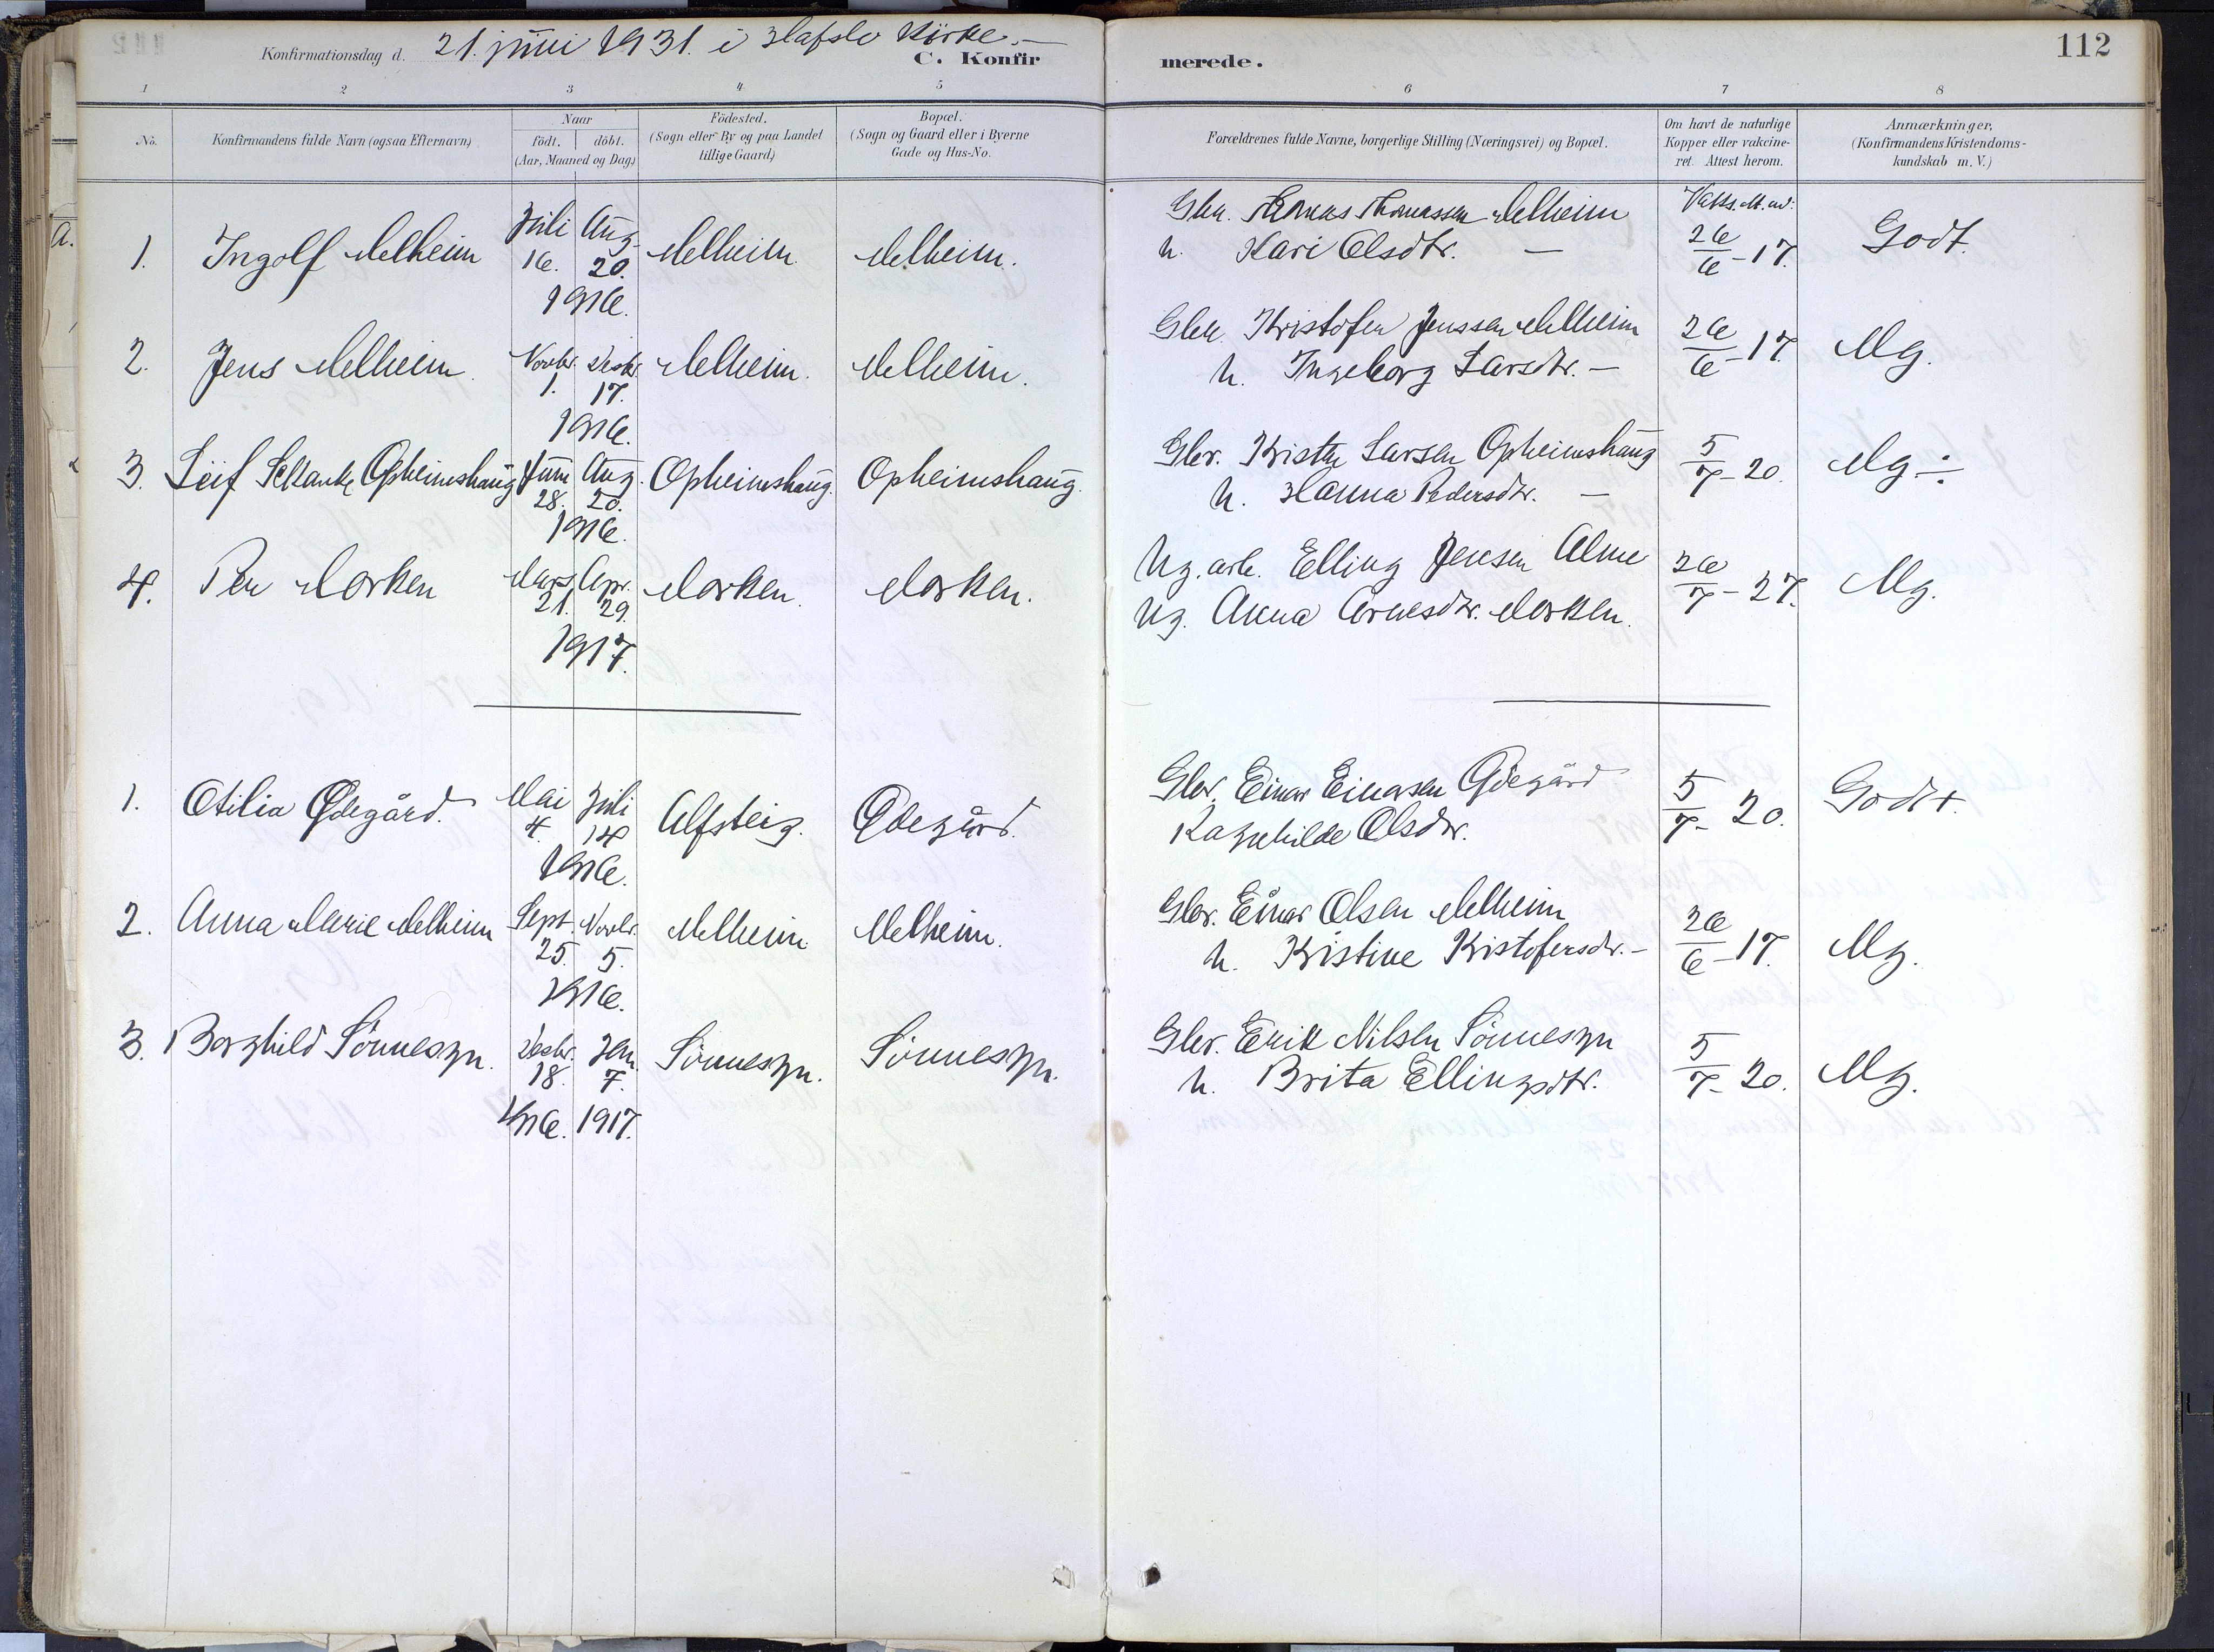 112
Konfirmationsdag d. 21. juni 1931. i Hafslo Kirke.—
C. Konfirmerede.
1 2 3 4 5 6 7 8
No.
Konfirmandens fulde Navn (ogsaa Efternavn)
Naar
födt. döbt.
(Aar, Maaned og Dag)
Födested.
(Sogn eller By og paa Landet
tillige Gaard)
Bopæl.
(Sogn og Gaard eller i Byerne
Gade og Hus-No.
Forældrenes fulde Navne, borgerlige Stilling (Næringsvei) og Bopæl.
Om havt de naturlige
Kopper eller vakcine-
ret. Attest herom.
Anmærkninger,
(Konfirmandens Kristendoms-
kundskab m. V.)
1. Ingolf Melheim Juli 16. Aug. 20. 1916. Melheim. Melheim. Thomas Thomassen Melheim
h. Kari Olsdtr. — 26/6-17. Godt.
2. Jens Melheim. Novbr. 1. Desbr. 17. 1916. Melheim. Melheim. Kristofer Jenssen Melheim
h. Ingeborg Larsdtr. — 26/6-17. Mg.
3. Leif Opheimshaug Juni 28. Aug. 20. 1916. Opheimshaug. Opheimshaug. Gbr. Kristen Larsen Opheimshaug
h. Hanna Pedersdtr. — 5/7-20. Mg ÷
4. Per Morken Mars 21. Apr. 29. 1917. Morken. Morken. Ug. arb. Elling Jensen Alme
Ug. Anna Arnesdtr. Morken. 26/7-27. Mg.
1. Otilia Ødegård. Mai 4. Juli 14 1916. Alfsteig. Ødegård. Gbr. Einar Einarsen Ødegård
Ragnhilde Olsdtr. 5/7-20. Godt+.
2. Anna Marie Melheim Sept. 25. Novbr. 5. 1916. Melheim Melheim. Gbr. Einar Olsen Melheim
h. Kristine Kristofersdtr. — 26/6-17. Mg.
3. Borghild Sönnesyn. Desbr. 18. 1916. Jan. 7. 1917. Sönnesyn. Sönnesyn. Gbr. Erik Nilsen Sönnesyn
h. Brita Ellingsdtr. 5/7-20. Mg.